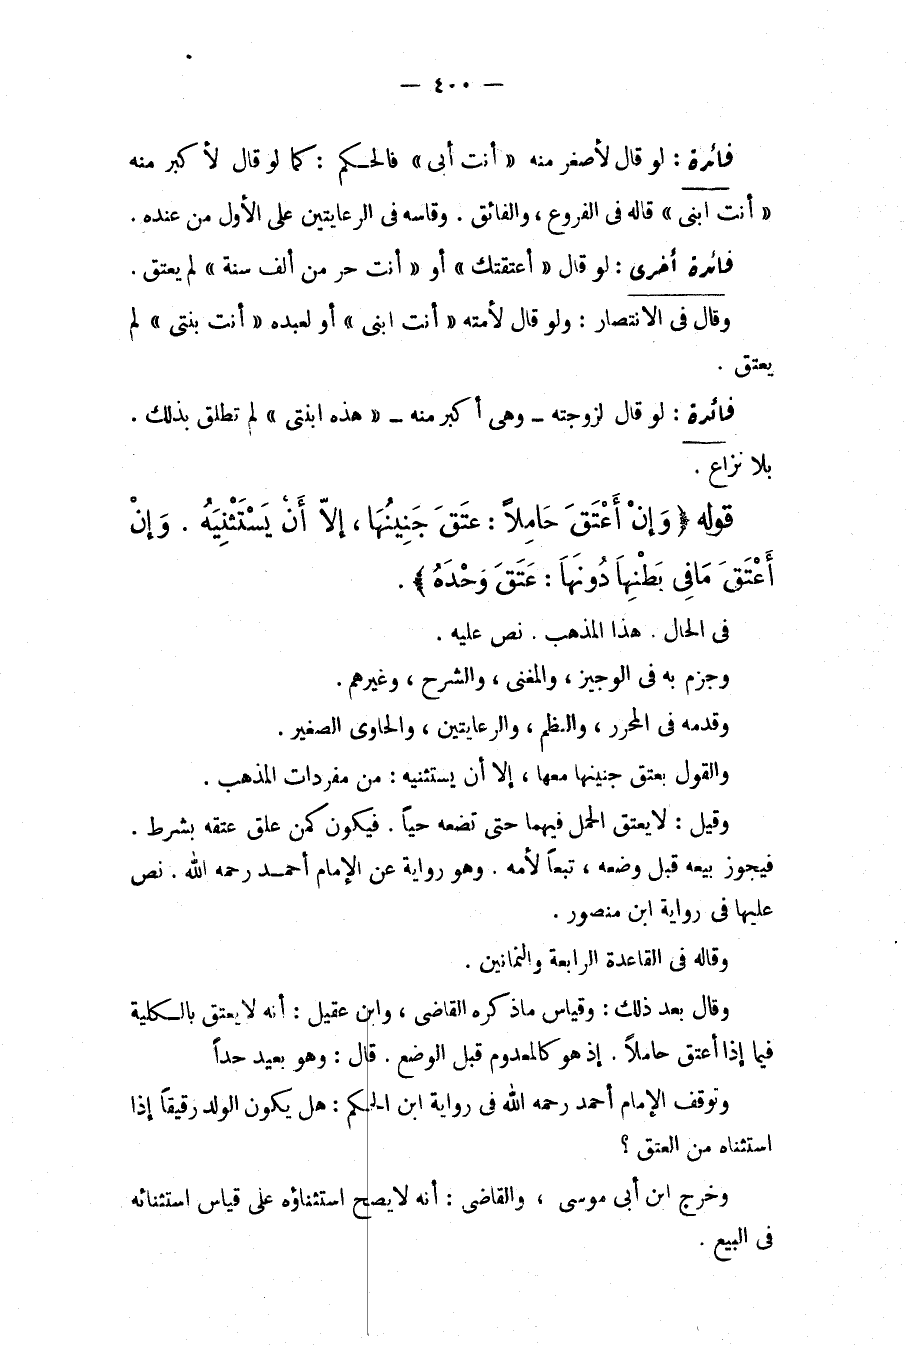 — ٤٠٠ —
فائدة : لو قال لأصغر منه « أنت أبى » فالحكم : كما لو قال لأكبر منه
« أنت ابنى » قاله فى الفروع ، والفائق . وقاسه فى الرعايتين على الأول من عنده .
فائدة أخرى : لو قال « أعتقتك » أو « أنت حر من ألف سنة » لم يعتق .
وقال فى الانتصار : ولو قال لأمته « أنت ابنى » أو لعبده « أنت بنتى » لم
يعتق .
فائدة : لو قال لزوجته ـ وهى أكبر منه ـ « هذه ابنتى » لم تطلق بذلك .
بلا نزاع .
قوله ﴿ وَإِنْ أَعْتَقَ حَامِلاً : عتَقَ جَنِينُهَا ، إلاّ أَنْ يَسْتَثْنِيَهُ . وَإِنْ
أَعْتَقَ مَافِى بَطْنِهَا دُونَهَا : عَتَقَ وَحْدَهُ ﴾ .
فى الحال . هذا المذهب . نص عليه .
وجزم به فى الوجيز ، والمغنى ، والشرح ، وغيرهم .
وقدمه فى المحرر ، والنظم ، والرعايتين ، والحاوى الصغير .
والقول بعتق جنينها معها ، إلا أن يستثنيه : من مفردات المذهب .
وقيل : لا يعتق الحمل فيهما حتى تضعه حياً . فيكون كمن علق عتقه بشرط .
فيجوز بيعه قبل وضعه ، تبعاً لأمه . وهو رواية عن الإمام أحمد رحمه الله . نص
عليها فى رواية ابن منصور .
وقاله فى القاعدة الرابعة والثمانين .
وقال بعد ذلك : وقياس ماذكره القاضى ، وابن عقيل : أنه لا يعتق بالكلية
فيما إذا أعتق حاملاً . إذ هو كالمعدوم قبل الوضع . قال : وهو بعيد جداً
وتوقف الإمام أحمد رحمه الله فى رواية ابن الحكم : هل يكون الولد رقيقاً إذا
استثناه من العتق ؟
وخرج ابن أبى موسى ، والقاضى : أنه لا يصح استثناؤه على قياس استثنائه
فى البيع .